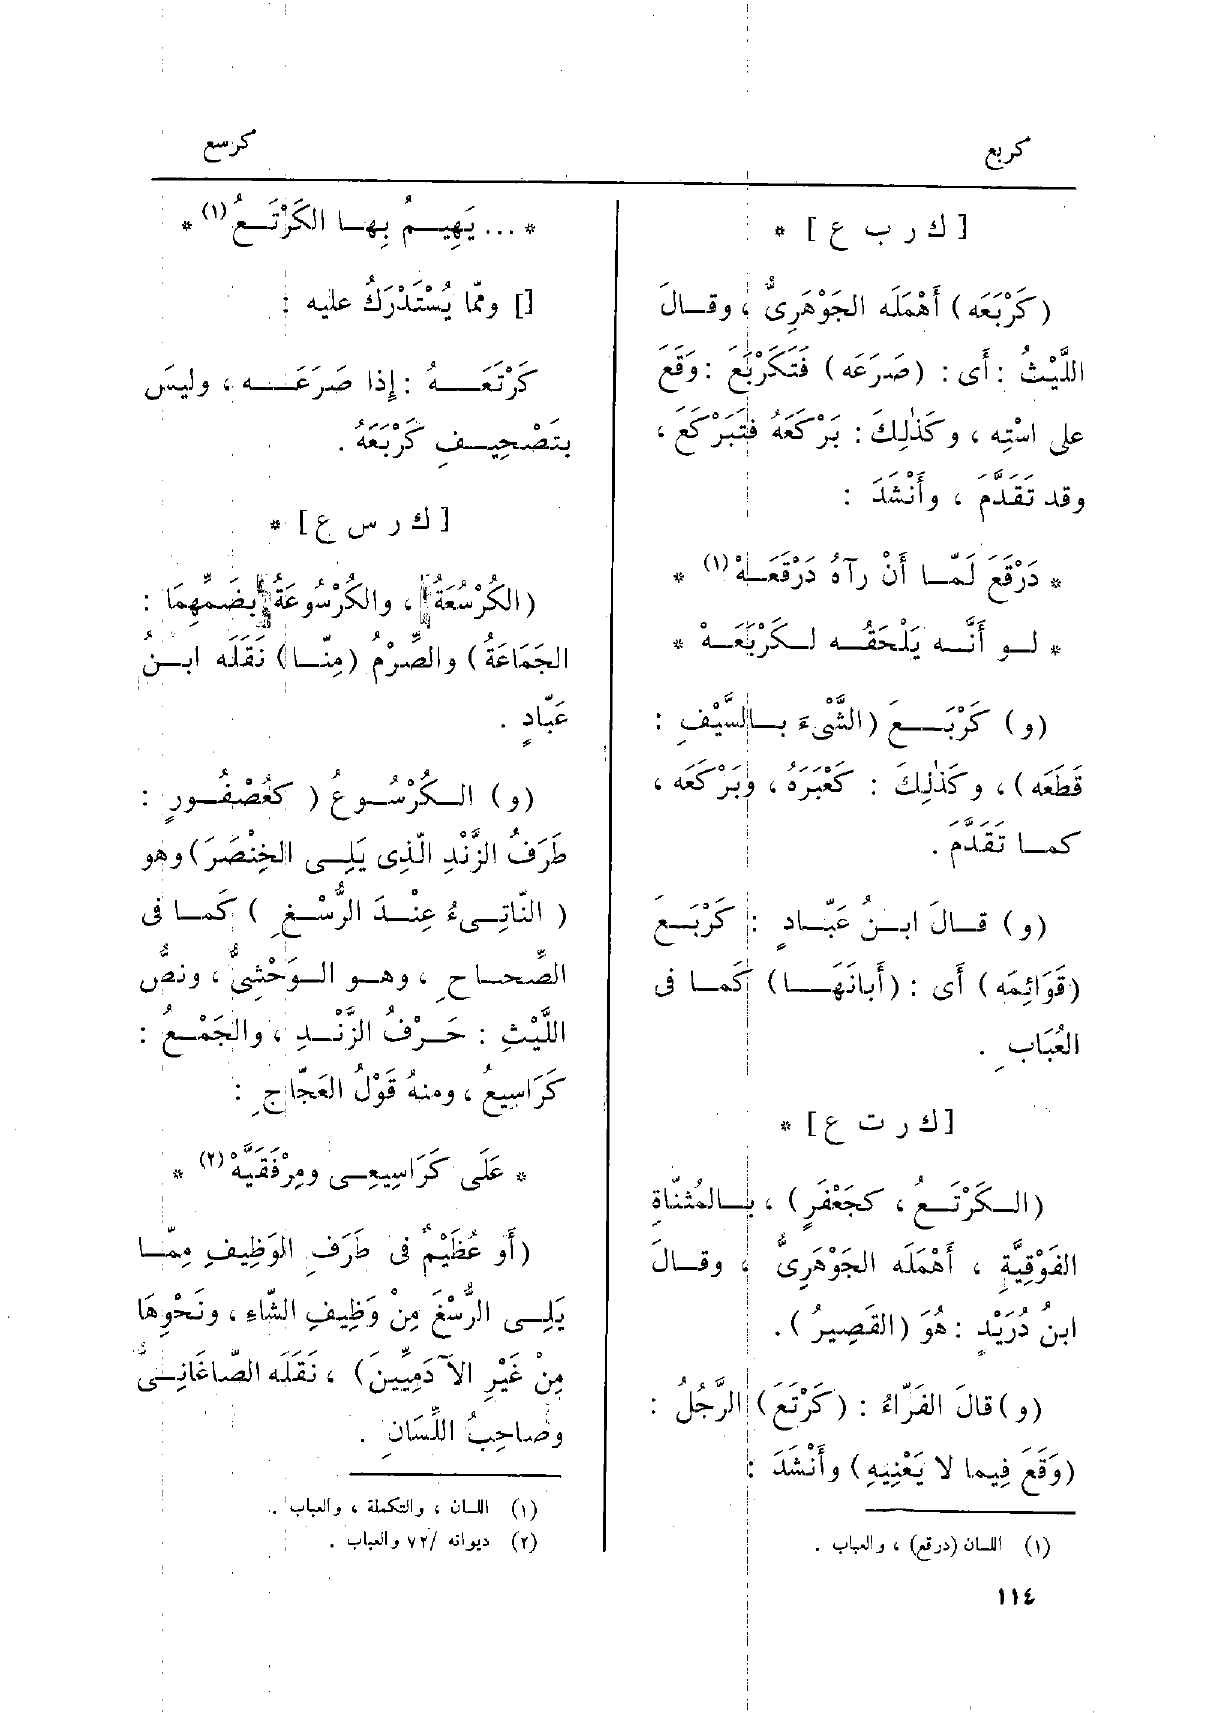 كربع
كرسع
[ ك ر ب ع ] *
(كَرْبَعَه) أَهْمَلَه الجَوْهَرِىُّ ، وقــالَ
اللَّيْثُ : أَى : (صَرَعَه) فَتَكَرْبَعَ : وَقَعَ
على اسْتِه ، وكَذٰلِكَ : بَرْكَعَهُ فتَبَرْكَعَ ،
وقد تَقَدَّمَ ، وأَنْشَدَ :
* دَرْقَعَ لَمّــا أَنْ رآهُ دَرْقَعَـهْ (١) *
* لــو أَنَّــه يَلْحَقُــه لــكَرْبَعَــهْ *
(و) كَرْبَــعَ (الشَّىْءَ بــالسَّيْفِ :
قَطَعَه) ، وكَذٰلِكَ : كَعْبَرَهُ ، وبَرْكَعَه ،
كمــا تَقَدَّمَ .
(و) قــالَ ابــنُ عَبّــادٍ : كَرْبَــعَ
(قَوَائِمَه) أَى : (أَبانَهَــا) كَمــا فى
العُبَابِ .
[ ك ر ت ع ] *
(الــكَرْتَــعُ ، كجَعْفَرٍ) ، بــالمُثنّاةِ
الفَوْقِيَّةِ ، أَهْمَلَه الجَوْهَرِىُّ ، وقــالَ
ابنُ دُرَيْدٍ : هُوَ (القَصِيرُ) .
(و) قالَ الفَرّاءُ : (كَرْتَعَ) الرَّجُلُ :
(وَقَعَ فِيما لا يَعْنِيهِ) وأَنْشَدَ :
(١) اللسان (درقع) ، والعباب .
* ... يَهِيــمُ بِهــا الكَرْتَــعُ (١) *
[] وممّا يُسْتَدْرَكُ عليه :
كَرْتَعَــهُ : إِذا صَرَعَــه ، وليسَ
بتَصْحِيــفِ كَرْبَعَهُ .
[ ك ر س ع ] *
(الكُرْسُعَةُ ، والكُرْسُوعَةُ بضَمِّهِمَا :
الجَمَاعَةُ) والصِّرْمُ (مِنّــا) نَقَلَه ابــنُ
عَبّادٍ .
(و) الــكُرْسُــوعُ (كعُصْفُــورٍ :
طَرَفُ الزَّنْدِ الّذِى يَلِــى الخِنْصَرَ) وهو
(النّاتِــىءُ عِنْــدَ الرُّسْــغِ) كَمــا فى
الصِّحــاحِ ، وهــو الــوَحْشِىُّ ، ونصُّ
اللَّيْثِ : حَــرْفُ الزَّنْــدِ ، والجَمْــعُ :
كَرَاسِيعُ ، ومنهُ قَوْلُ العَجّاجِ :
* عَلَى كَرَاسِيعِــى ومِرْفَقَيَّهْ (٢) *
(أَو عُظَيْمٌ فى طَرَفِ الوَظِيفِ مِمّــا
يَلِــى الرُّسْغَ مِنْ وَظِيفِ الشّاءِ ، ونَحْوِهَا
مِنْ غَيْرِ الآدَمِيِّينَ) ، نَقَلَه الصّاغَانِــىُّ
وصاحِبُ اللِّسَانِ .
(١) اللسان ، والتكملة ، والعباب .
(٢) ديوانه /٧٢ والعباب .
١١٤